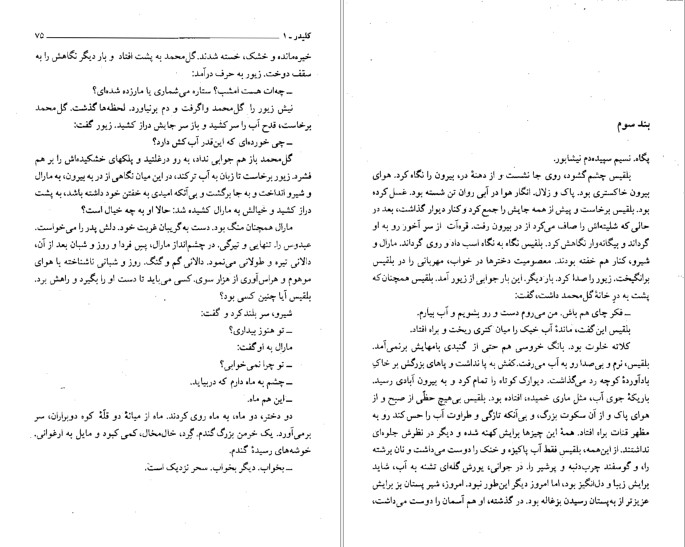 کلیدر ـ ۱ ۷۵
خیره‌مانده و خشک، خسته شدند. گل‌محمد به پشت افتاد و بار دیگر نگاهش را به
سقف دوخت. زیور به حرف درآمد:
ـ چه‌ات هست امشب؟ ستاره می‌شماری یا مارزده شده‌ای؟
نیش زیور را گل‌محمد واگرفت و دم برنیاورد. لحظه‌ها گذشت. گل‌محمد
برخاست، قدح آب را سر کشید و باز سر جایش دراز کشید. زیور گفت:
ـ چی خورده‌ای که این‌قدر آب‌کش دارد؟
گل‌محمد باز هم جوابی نداد، به رو درغلتید و پلکهای خشکیده‌اش را بر هم
فشرد. زیور برخاست تا زبان به آب تر کند، در این میان نگاهی از در به بیرون، به مارال
و شیرو انداخت و به جا برگشت و بی‌آنکه امیدی به خفتن خود داشته باشد، به پشت
دراز کشید و خیالش به مارال کشیده شد: حالا او به چه خیال است؟
مارال همچنان منگ بود. دست به‌گریبان غربت خود. دلش پدر را می‌خواست.
عبدوس را. تنهایی و تیرگی. در چشم‌انداز مارال، پسِ فردا و روز و شبان بعد از آن،
دالانی تیره و طولانی می‌نمود. دالانی گم و گنگ. روز و شبانی ناشناخته با هوای
موهوم و هراس‌آوری از هزار سوی. کسی می‌باید تا دست او را بگیرد و راهش برد.
بلقیس آیا چنین کسی بود؟
شیرو، سر بلند کرد و گفت:
ـ تو هنوز بیداری؟
مارال به او گفت:
ـ تو چرا نمی‌خوابی؟
ـ چشم به ماه دارم که دربیاید.
ـ این هم ماه.
دو دختر، دو ماه، به ماه روی کردند. ماه از میانهٔ دو قلّهٔ کوه دوبراران، سر
برمی‌آورد. یک خرمن بزرگ گندم. گِرد، خال‌مخال، کمی کبود و مایل به ارغوانی.
خوشه‌های رسیدهٔ گندم.
ـ بخواب. دیگر بخواب. سحر نزدیک است.
بند سوم
پگاه. نسیم سپیده‌دم نیشابور.
بلقیس چشم گشود، روی جا نشست و از دهنهٔ در، بیرون را نگاه کرد. هوای
بیرون خاکستری بود. پاک و زلال. انگار هوا در آبی روان تن شسته بود. غسل کرده
بود. بلقیس برخاست و پیش از همه جایش را جمع کرد و کنار دیوار گذاشت، بعد در
حالی که شلیته‌اش را صاف می‌کرد از در بیرون رفت. قره‌آت از سر آخور رو به او
گرداند و بیگانه‌وار نگاهش کرد. بلقیس نگاه به نگاه اسب داد و روی گرداند. مارال و
شیرو، کنار هم خفته بودند. معصومیت دخترها در خواب، مهربانی را در بلقیس
برانگیخت. زیور را صدا کرد. بار دیگر. این بار جوابی از زیور آمد. بلقیس همچنان که
پشت به درِ خانهٔ گل‌محمد داشت، گفت:
ـ فکر چای هم باش. من می‌روم دست و رو بشویم و آب بیارم.
بلقیس این گفت، ماندهٔ آب خیک را میان کتری ریخت و براه افتاد.
کلاته خلوت بود. بانگ خروسی هم حتی از گنبدی بامهایش برنمی‌آمد.
بلقیس، نرم و بی‌صدا رو به آب می‌رفت. کفش به پا نداشت و پاهای بزرگش بر خاکِ
بادآوردهٔ کوچه رد می‌گذاشت. دیوارک کوتاه را تمام کرد و به بیرون آبادی رسید.
باریکهٔ جوی آب، مثل ماری خمیده، افتاده بود. بلقیس بی‌هیچ حظّی از صبح و از
هوای پاک و از آن سکوت بزرگ، و بی‌آنکه تازگی و طراوت آب را حس کند رو به
مظهر قنات براه افتاد. همهٔ این چیزها برایش کهنه شده و دیگر در نظرش جلوه‌ای
نداشتند. از این‌همه، بلقیس فقط آب پاکیزه و خنک را دوست می‌داشت و نان برشته
را، و گوسفند چرب‌دنبه و پرشیر را. در جوانی، یورش گله‌ای تشنه به آب، شاید
برایش زیبا و دل‌انگیز بود، اما امروز دیگر این‌طور نبود. امروز، شیر پستان بز برایش
عزیزتر از به‌پستان رسیدن بزغاله بود. در گذشته، او هم آسمان را دوست می‌داشت،